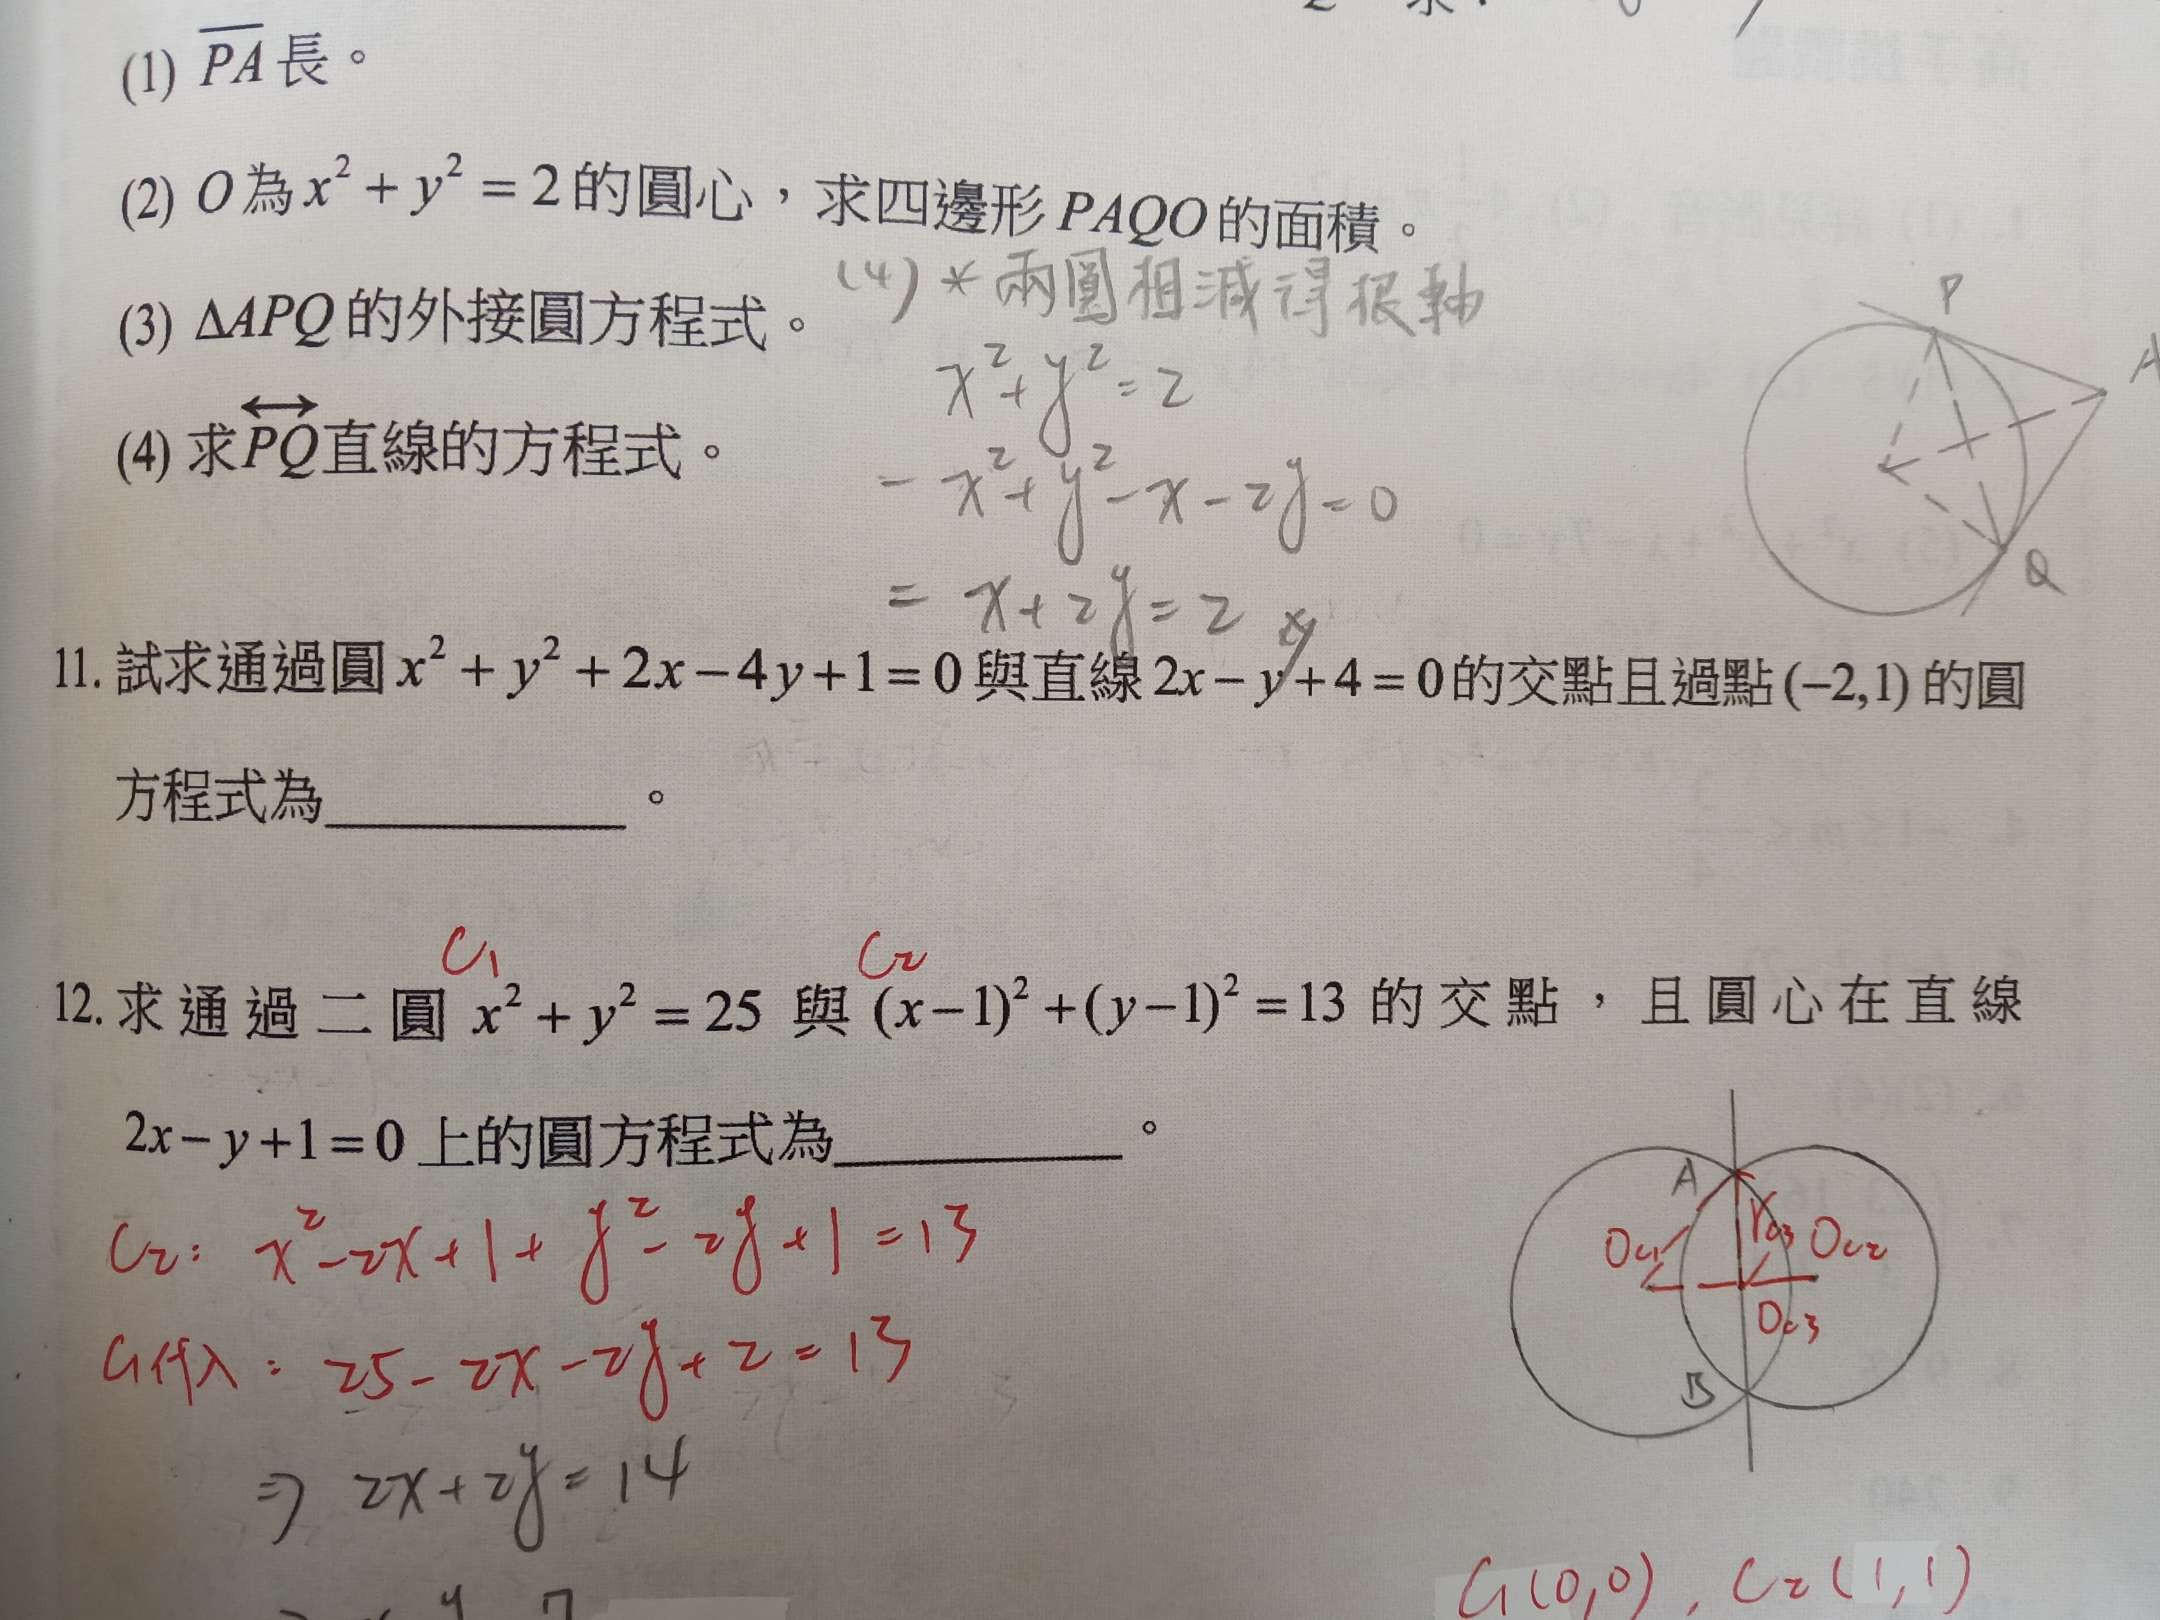 (1) PA長。
(2) O為x²+y²=2的圓心，求四邊形PAQO的面積。
(4) *兩圓相減得根軸
(3) ΔAPQ的外接圓方程式。
x²+y²=2
(4) 求PQ直線的方程式。
-x²+y²-x-2y=0
= x+2y=2
P
A
Q
11. 試求通過圓x²+y²+2x-4y+1=0與直線2x-y+4=0的交點且過點(-2,1)的圓
方程式為____________。
C₁ C₂
12. 求通過二圓 x²+y²=25 與 (x-1)²+(y-1)²=13 的交點，且圓心在直線
2x-y+1=0 上的圓方程式為____________。
C₂: x²-2x+1+y²-2y+1=13
C₁代入: 25-2x-2y+2=13
⇒ 2x+2y=14
A
Oc₁ rc₃ Oc₂
Oc₃
B
C₁(0,0), C₂(1,1)